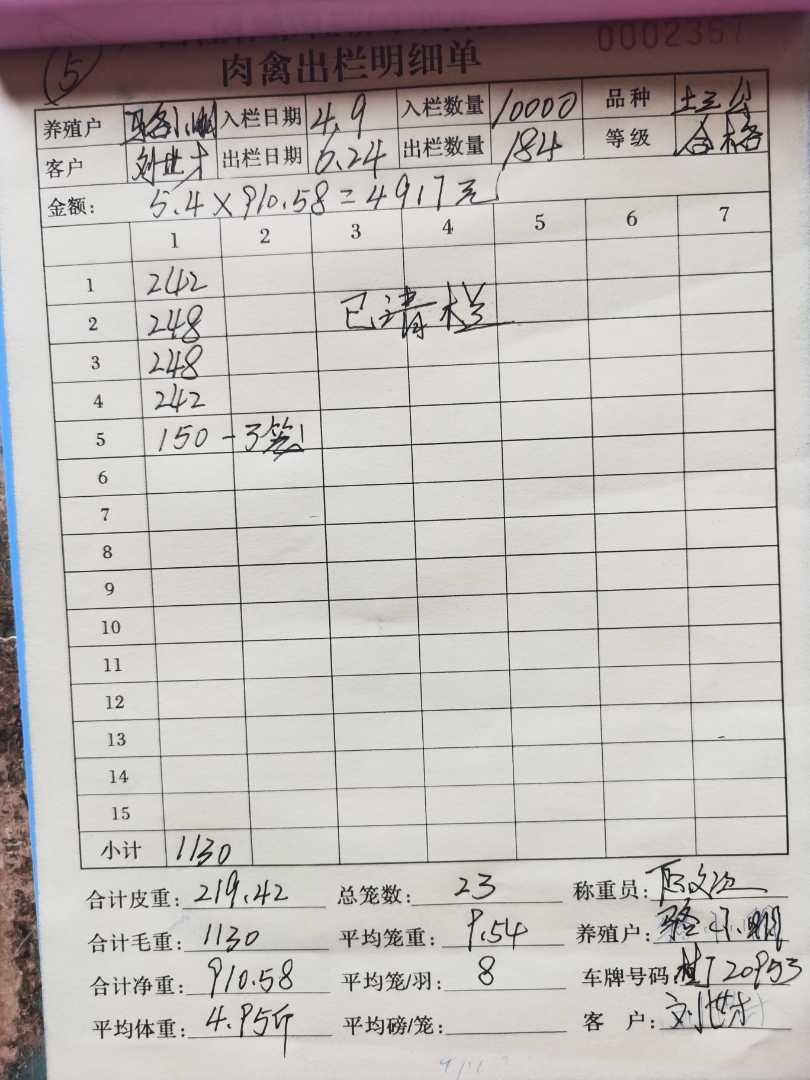 ⑤
肉禽出栏明细单
0002357
养殖户 骆小明 入栏日期 4.9 入栏数量 10000 品种 土三公
客户 刘世才 出栏日期 6.24 出栏数量 184 等级 合格
金额: 5.4×910.58=4917元
1 2 3 4 5 6 7
1 242
2 248 已清栏
3 248
4 242
5 150 - 3笼
6
7
8
9
10
11
12
13
14
15
小计 1130
合计皮重: 219.42 总笼数: 23 称重员:
合计毛重: 1130 平均笼重: 9.54 养殖户: 骆小明
合计净重: 910.58 平均笼/羽: 8 车牌号码: 桂J20953
平均体重: 4.95斤 平均磅/笼: 客 户: 刘世才